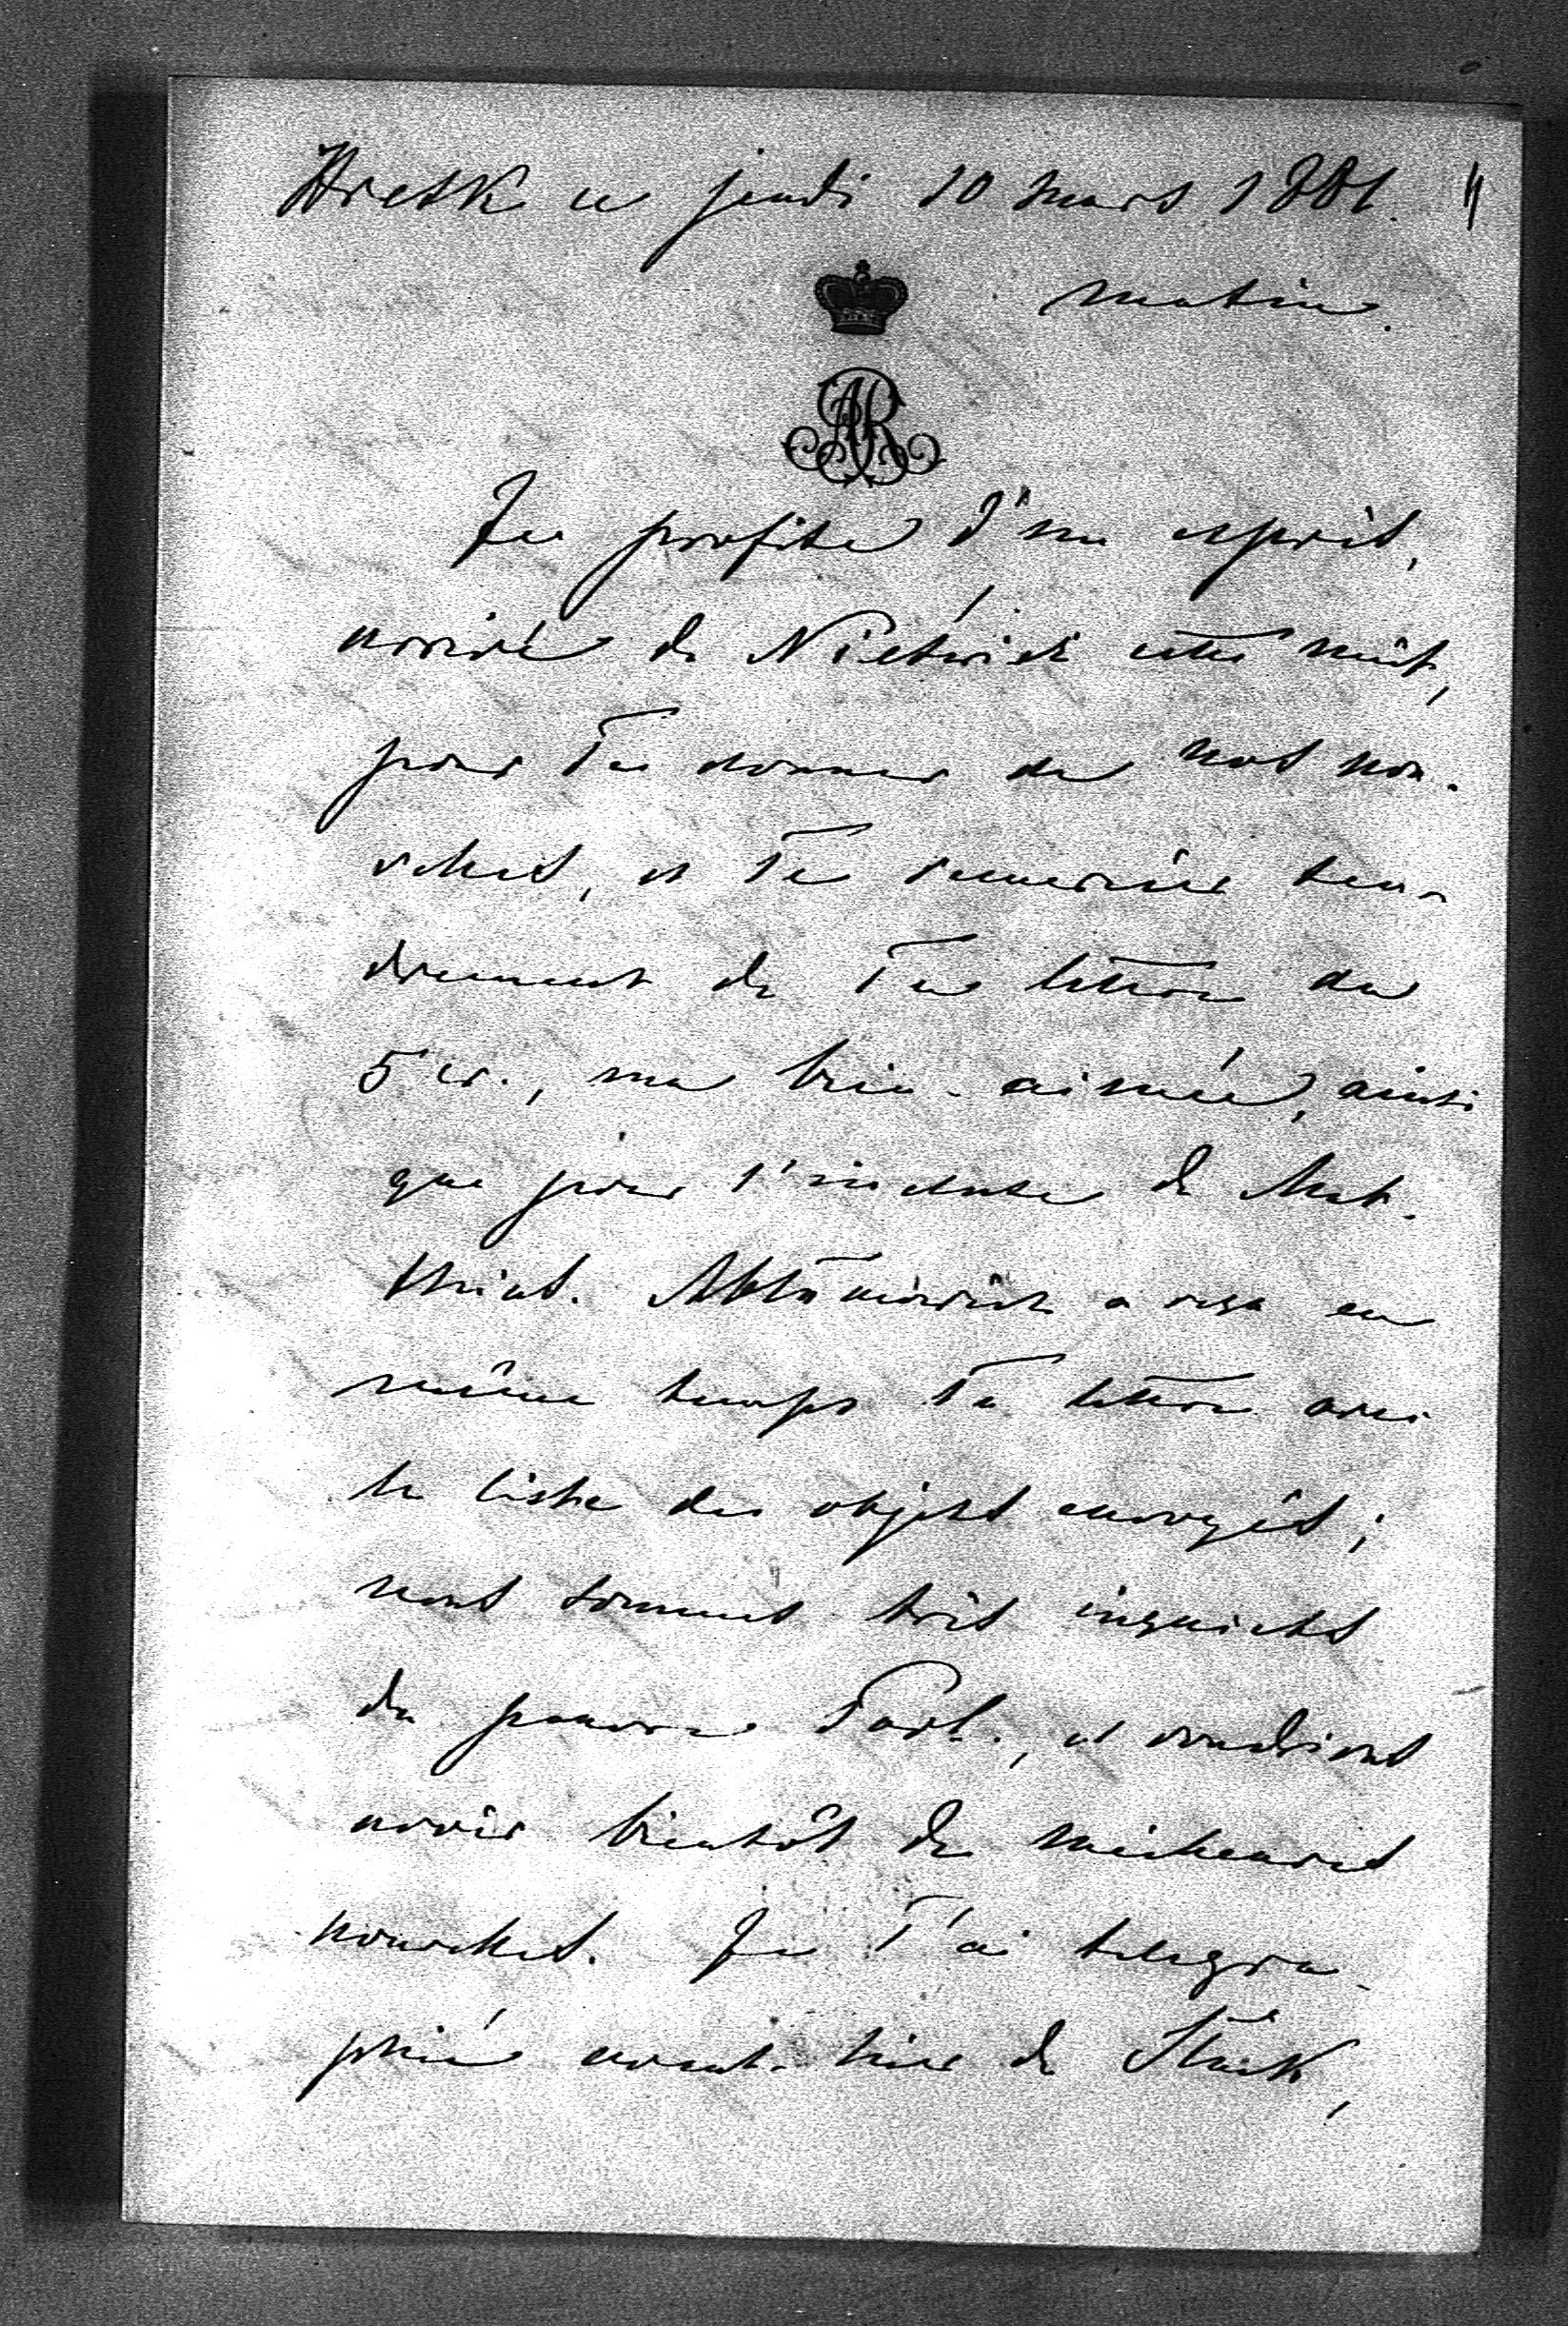 Hresk ce jeudi 10 mars 1881.
matin.
AR
Je profite d'un esprit,
arrivé de Nieświż cette nuit,
pour Te donner de nos nou-
velles, et Te remercier ten-
drement de Ta lettre du
5 cr., ma bien-aimée, ainsi
que pour l'incluse de Mat-
thias. a reçu en
même temps Ta lettre avec
la liste des objets envoyés;
nous sommes très inquiets
du pauvre et voudrions
avoir bientôt de meilleures
nouvelles. Je T'ai telegra-
phié avant-hier de Słuck,